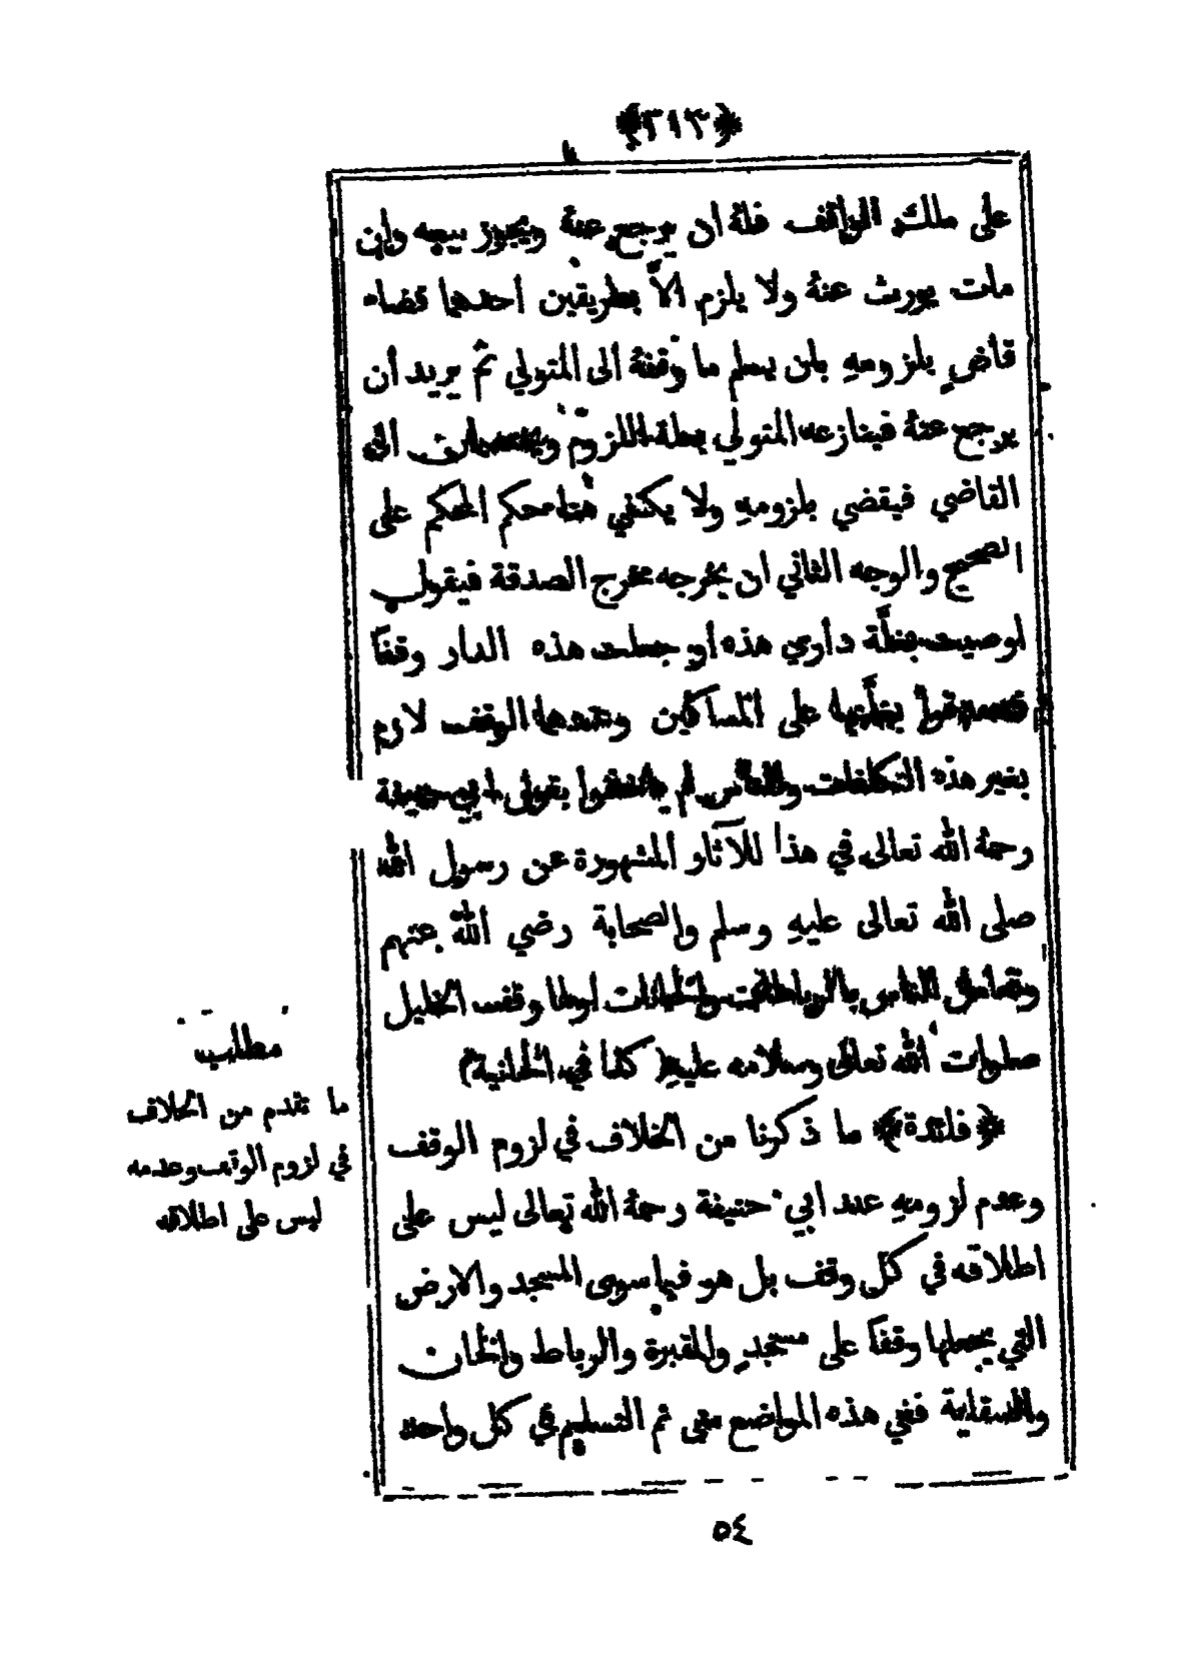 ﴿٣١٣﴾
على ملك الواقف فلهُ ان يرجع عنهُ ويجوز بيعه وان
مات يورث عنهُ ولا يلزم الَّا بطريقين احدهما قضاء
قاضٍ بلزومهِ بان يسلم ما وقفهُ الى المتولي ثم يريد أن
يرجع عنهُ فينازعه المتولي بعلة اللزوم ويختصمان الى
القاضي فيقضي بلزومهِ ولا يكتفي هنا محكم المحكم على
الصحيح والوجه الثاني ان يخرجه مخرج الصدقة فيقول
اوصيت بغلَّة داري هذه او جعلت هذه الدار وقفًا
فتصدقوا بغلَّتها على المساكين وعندهما الوقف لازم
بغير هذه التكلفات والناس لم يأخذوا بقول ابي حنيفة
رحمهُ الله تعالى في هذا للآثار المشهورة عن رسول الله
صلى الله تعالى عليهِ وسلم والصحابة رضي الله عنهم
وتعامل الناس بالرباطات والخانات اولها وقف الخليل
صلوات الله تعالى وسلامه عليهِ (كذا في الخانية)
﴿فائدة﴾ ما ذكرنا من الخلاف في لزوم الوقف
وعدم لزومهِ عند ابي حنيفة رحمهُ الله تعالى ليس على
اطلاقه في كل وقف بل هو فيما سوى المسجد والارض
التي يجعلها وقفًا على مسجدٍ والمقبرة والرباط والخان
والسقاية ففي هذه المواضع متى تم التسليم في كل واحد
مطلب
ما تقدم من الخلاف
في لزوم الوقف وعدمه
ليس على اطلاقه
٥٤